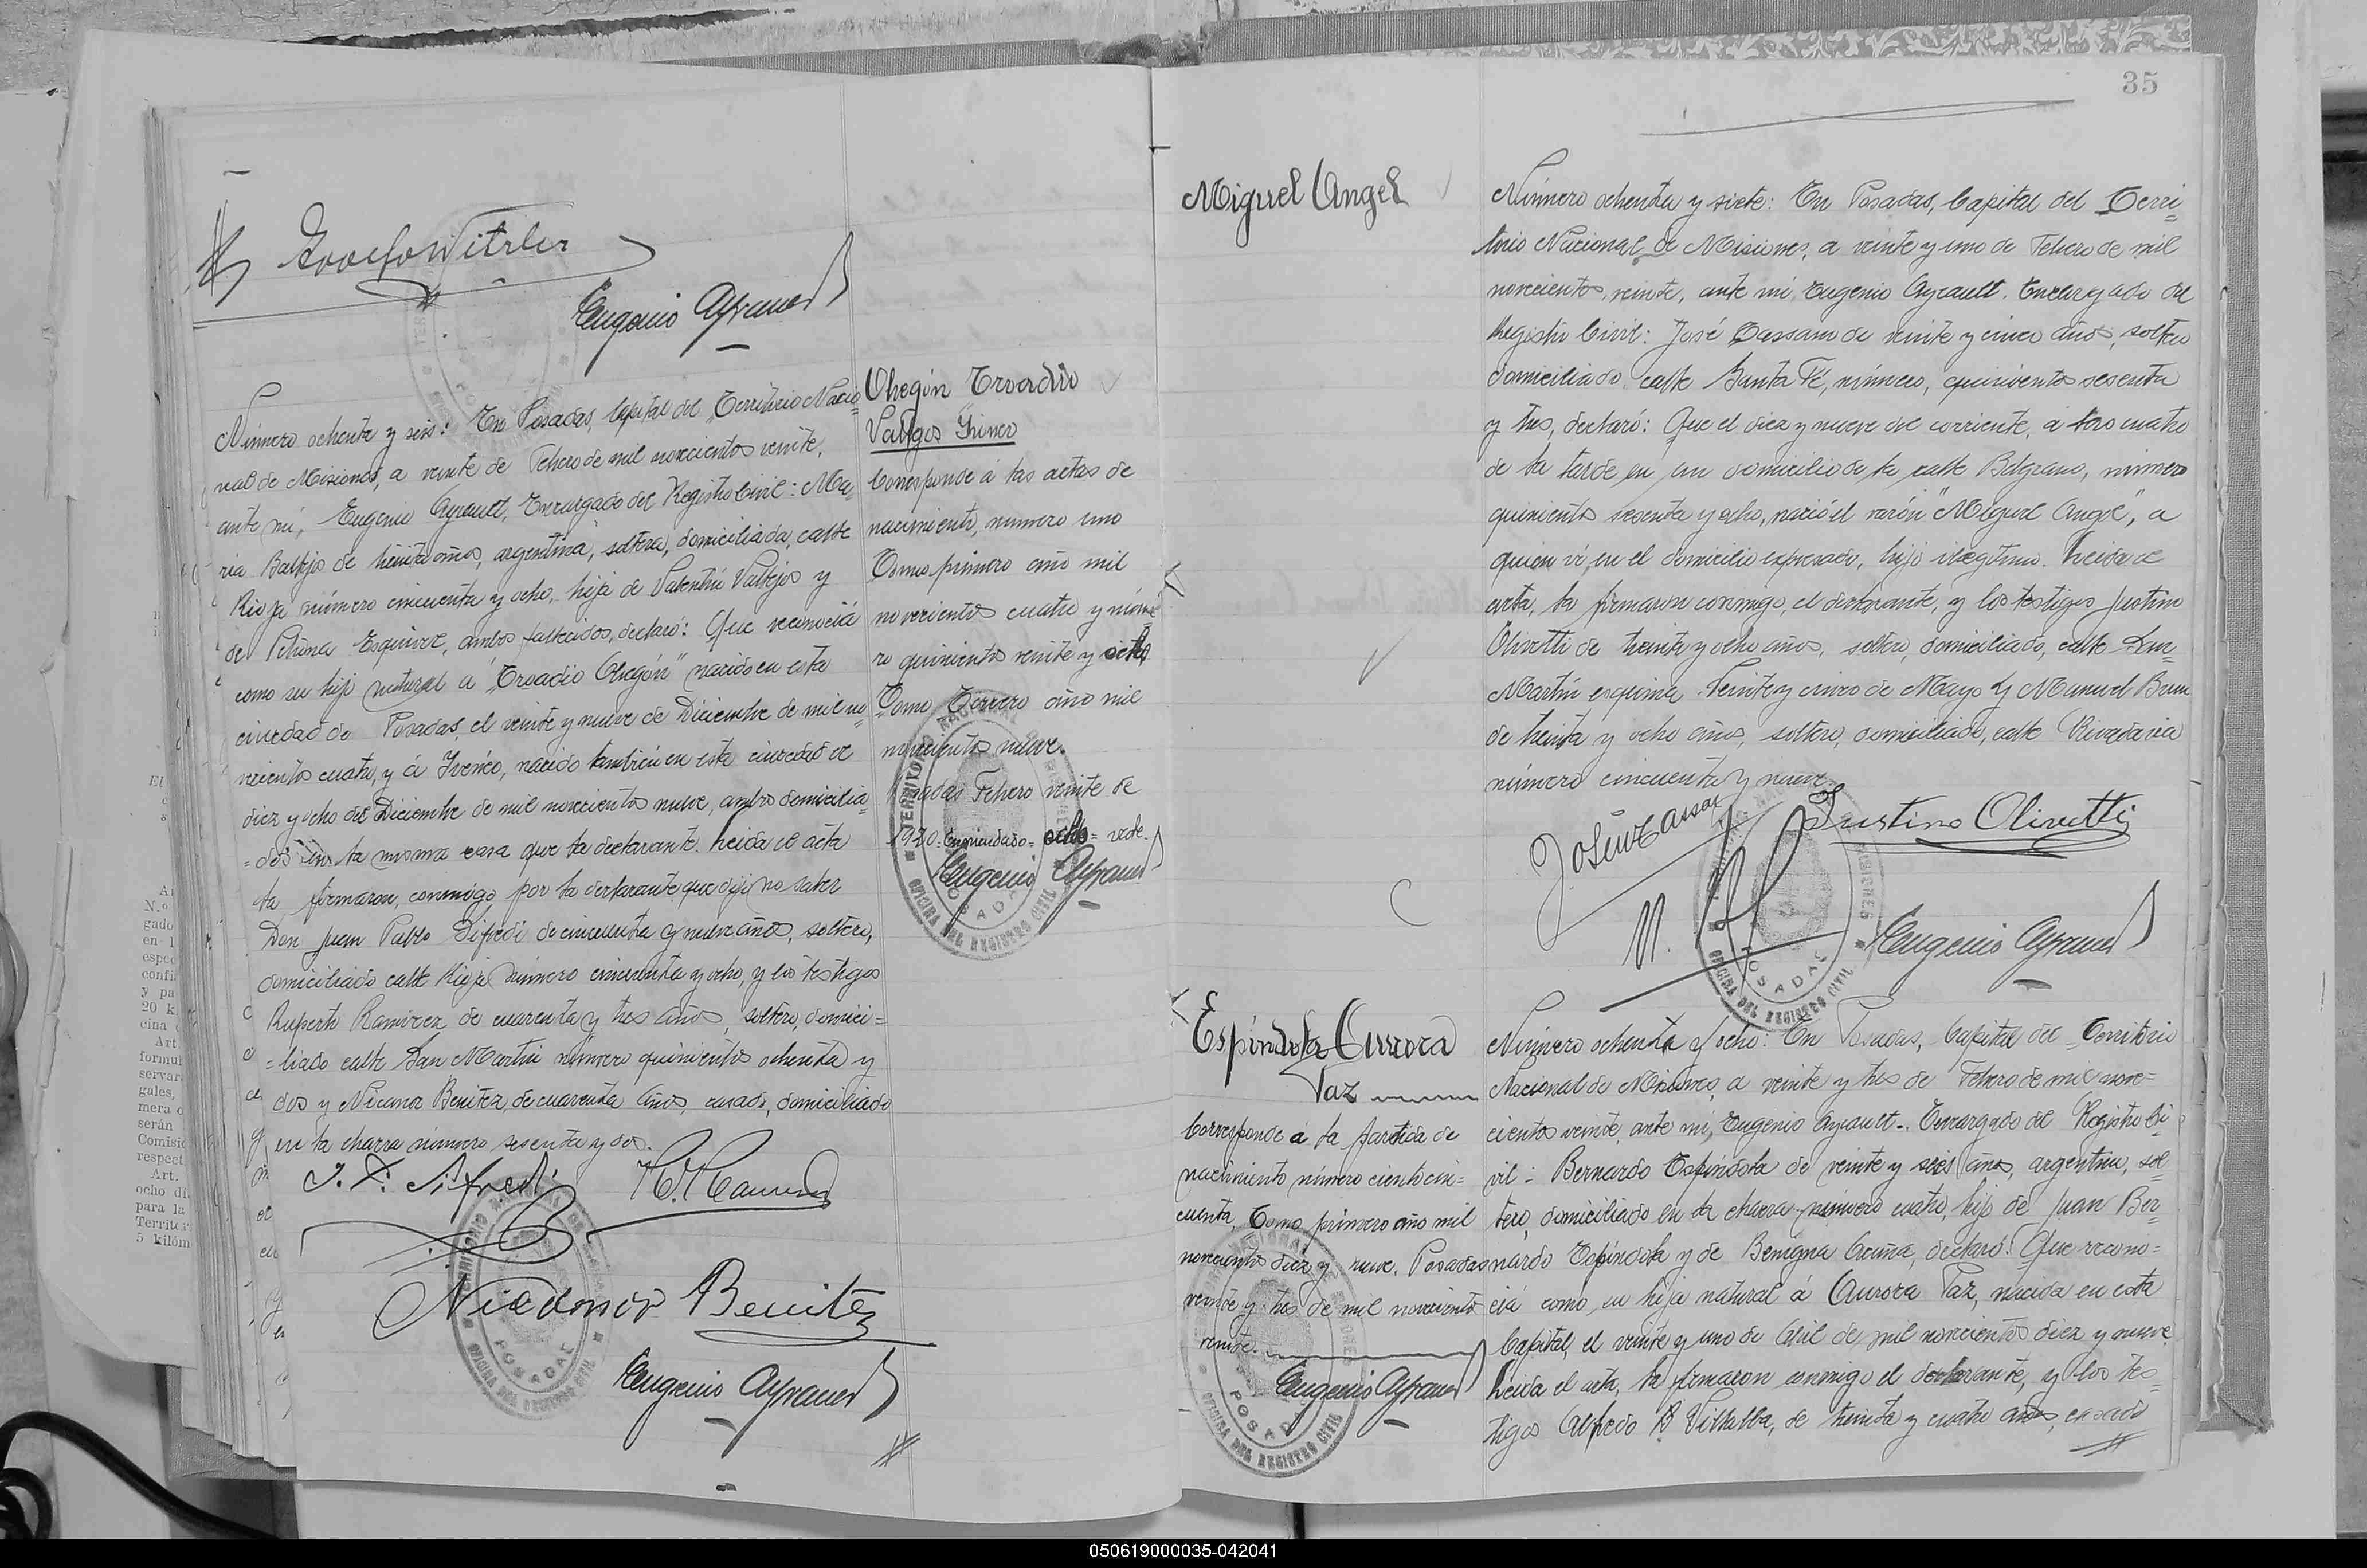 Eugenio Ayrault
Número ochenta y seis: En Posadas, Capital del Territorio Nacio=
nal de Misiones, a veinte de Febrero de mil novecientos veinte,
ante mí, Eugenio Ayrault, Encargado del Registro Civil: Ma=
ria Ballejo de treinta años, argentina, soltera, domiciliada, calle
Rioja número cincuenta y ocho, hija de Valentin Vallejos y
de Esquivel, ambos fallecidos, declaró: Que reconocia
como su hijo natural á "Eroadio Obregón" nacido en esta
ciudad de Posadas, el veinte y nueve de Diciembre de mil no=
vecientos cuatro, y á Irenéo, nacido tambien en esta ciudad el
diez y ocho del Diciembre de mil novecientos nueve, ambos domicilia=
=dos en la misma casa que la declarante. Leida el acta
la firmaron, conmigo, por la declarante que dijo no saber
Don Juan Pablo Sifredi de cincuenta y nueve años, soltero,
domiciliado calle Rioja número cincuenta y ocho, y los testigos
Ruperto Ramirez de cuarenta y tres años, soltero, domici=
=liado calle San Martin número quinientos ochenta y
dos y Nicanor Benitez, de cuarenta años, casado, domiciliado
en la chacra número sesenta y dos.
J. P. Sifredi
Nicanor Benitez
Eugenio Ayrault
Eroadio
Corresponde á las actas de
nacimiento, numero uno
Tomo primero año mil
novecientos cuatro y núme=
ro quinientos veinte y ocho
Tomo Tercero año mil
novecientos nueve.
Posadas Febrero veinte de
1920. Enmendado = ocho = vale.
Eugenio Ayrault
TERRITORIO NACIONAL DE MISIONES
OFICINA DEL REGISTRO CIVIL
POSADAS
35
Miguel Angel
Número ochenta y siete: En Posadas, Capital del Terri=
torio Nacional de Misiones, a veinte y uno de Febrero de mil
novecientos veinte, ante mi, Eugenio Ayrault. Encargado del
Registro Civil: José Cassano de veinte y cinco años, soltero
domiciliado calle Santa Fé, número, quinientos sesenta
y tres, declaró: Que el diez y nueve del corriente, a las cuatro
de la tarde en su domicilio de la calle Belgrano, número
quinientos sesenta y ocho, nació el varón "Miguel Angel", a
quien ví en el domicilio expresado, hijo ilegitimo. Leida el
acta, la firmaron conmigo, el declarante, y los testigos Justino
Olivetti de treinta y ocho años, soltero, domiciliado, calle San
Martín esquina Veinte y cinco de Mayo y Manuel Brun
de treinta y ocho años, soltero, domiciliado, calle Rivadavia
número cincuenta y nueve.
Justino Olivetti
Eugenio Ayrault
Espíndola Aurora
Paz
Corresponde á la partida de
nacimiento número ciento cin=
cuenta, Tomo primero año mil
novecientos diez y nueve. Posadas
veinte y tres de mil novecientos
veinte.
Eugenio Ayrault
Número ochenta y ocho: En Posadas, Capital del Territorio
Nacional de Misiones, a veinte y tres de Febrero de mil nove=
cientos veinte, ante mi, Eugenio Ayrault. Encargado del Registro Ci=
vil: Bernardo Espíndola de veinte y seis años, argentino, sol
tero, domiciliado en la chacra número cuatro, hijo de Juan Ber=
nardo Espíndola y de Benigna Acuña, declaró: Que recono=
ciá como su hija natural á Aurora Paz, nacida en esta
Capital, el veinte y uno de Abril de mil novecientos diez y nueve
Leida el acta, la firmaron conmigo el declarante, y los tes=
tigos Alfredo B. Villalba, de treinta y cuatro años, casado
050619000035-042041